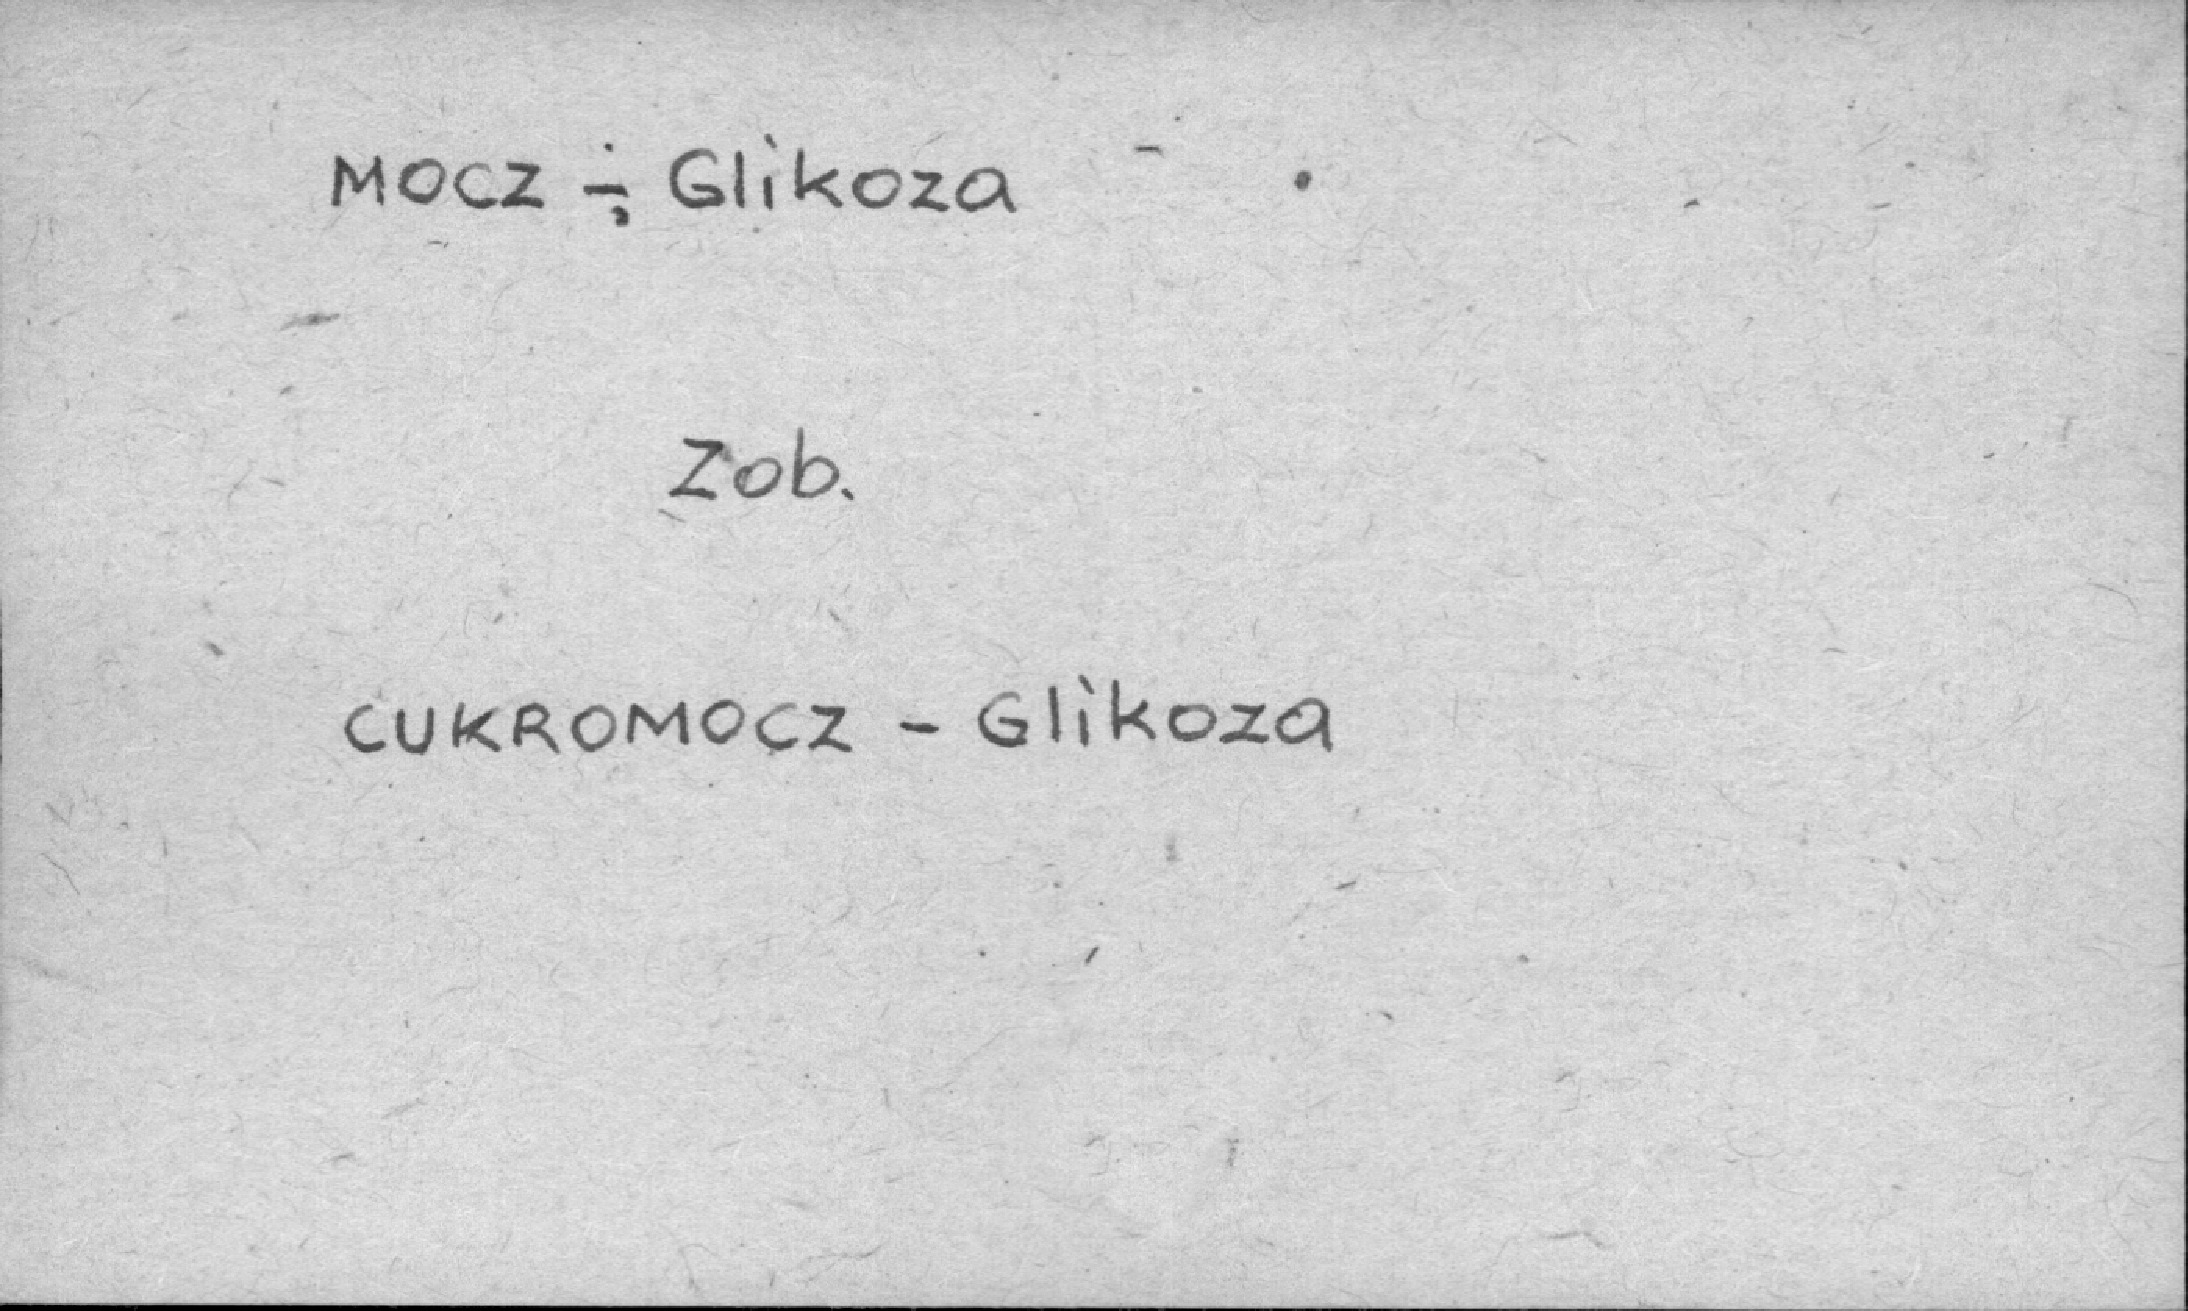 MOCZ ÷ Glikoza
Zob.
CUKROMOCZ - Glikoza